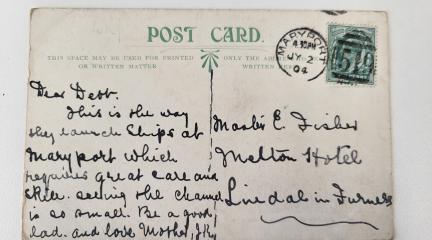 POST CARD.
THIS SPACE MAY BE USED FOR PRINTED
OR WRITTEN MATTER
ONLY THE
WRITTEN
MARYPORT
4.30PM
JY 2
04
519
Dear
This is the way
they launch ships at
Maryport which
requires great care and
skill. seeing the channel
is so small. Be a good
lad. and love Mother,
Master E. Fisher
Melton Hotel
Lindal in Furness